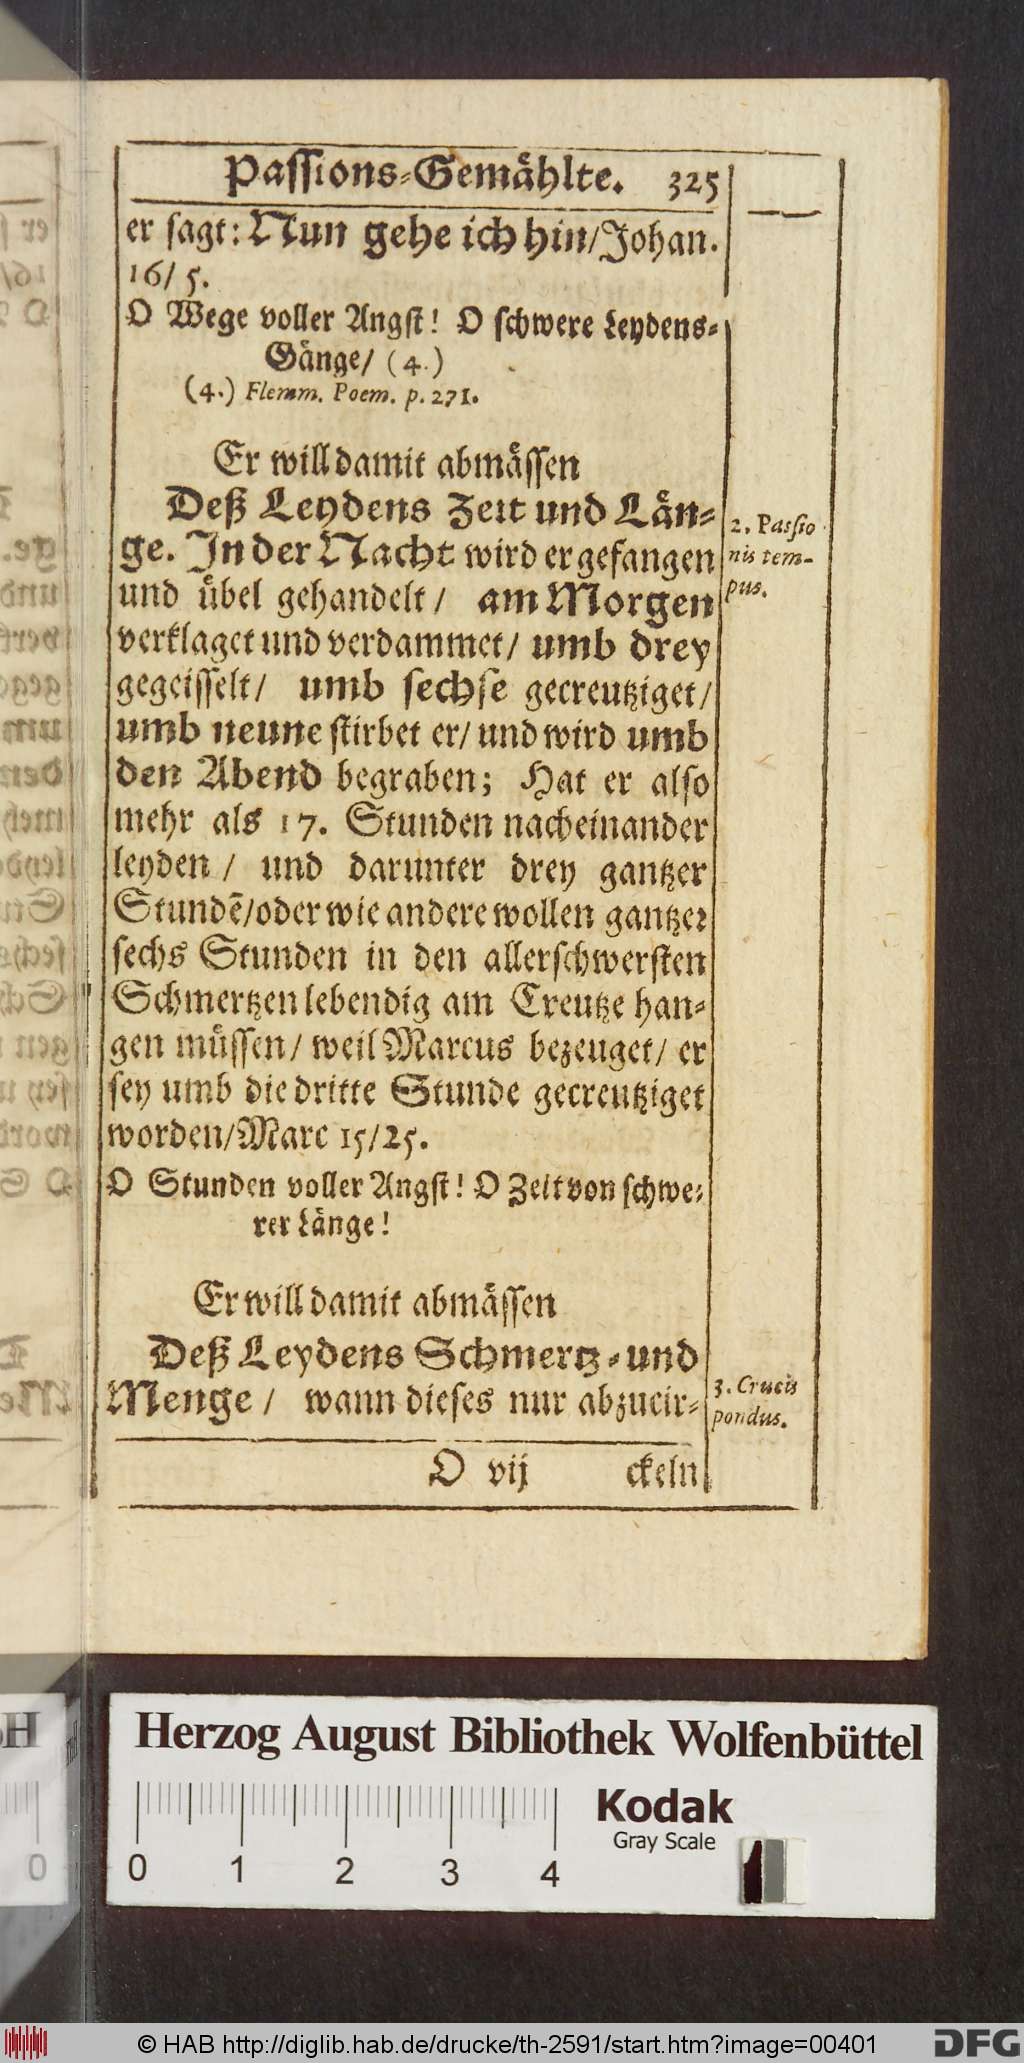 Passions-Gemåhlte. 325
er sagt: Nun gehe ich hin/Johan.
16/ 5.
O Wege voller Angst! O schwere Leydens-
Gånge/ (4.)
(4.) Flemm. Poem. p. 271.
Er will damit abmåssen
Deß Leydens Zeit und Län-
ge. In der Nacht wird er gefangen
2. Passio
nis tem-
pus.
und übel gehandelt/ am Morgen
verklaget und verdammet/ umb drey
gegeisselt/ umb sechse gecreutziget/
umb neune stirbet er/ und wird umb
den Abend begraben; Hat er also
mehr als 17. Stunden nacheinander
leyden/ und darunter drey gantzer
Stundẽ/oder wie andere wollen gantzer
sechs Stunden in den allerschwersten
Schmertzen lebendig am Creutze han-
gen müssen/ weil Marcus bezeuget/ er
sey umb die dritte Stunde gecreutziget
worden/Marc 15/25.
O Stunden voller Angst! O Zeit von schwe-
rer Länge!
Er will damit abmåssen
Deß Leydens Schmertz-und
Menge/ wann dieses nur abzucir-
3. Crucis
pondus.
O vij ckeln
Herzog August Bibliothek Wolfenbüttel
Kodak
Gray Scale
0 1 2 3 4
© HAB http://diglib.hab.de/drucke/th-2591/start.htm?image=00401
DFG